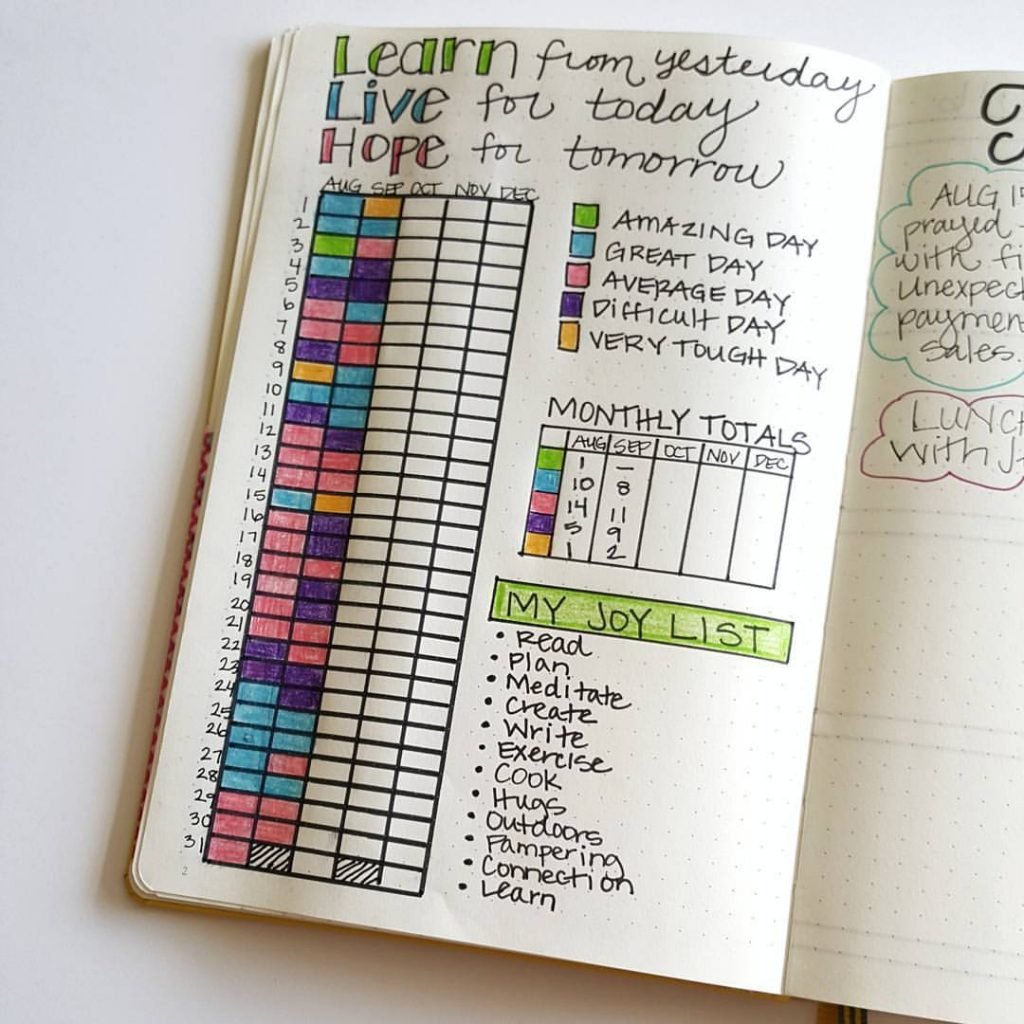 Learn from yesterday
Live for today
Hope for tomorrow
AUG SEP OCT NOV DEC
1
2
3
4
5
6
7
8
9
10
11
12
13
14
15
16
17
18
19
20
21
22
23
24
25
26
27
28
29
30
31
2
AMAZING DAY
GREAT DAY
AVERAGE DAY
DIFFICULT DAY
VERY TOUGH DAY
MONTHLY TOTALS
AUG SEP OCT NOV DEC
1 –
10 8
14 11
5 9
1 2
MY JOY LIST
• Read
• Plan
• Meditate
• Create
• Write
• Exercise
• Cook
• Hugs
• Outdoors
• Pampering
• Connection
• Learn
AUG 15
prayed
with fi
unexpec
paymen
sales.
LUNCH
with J